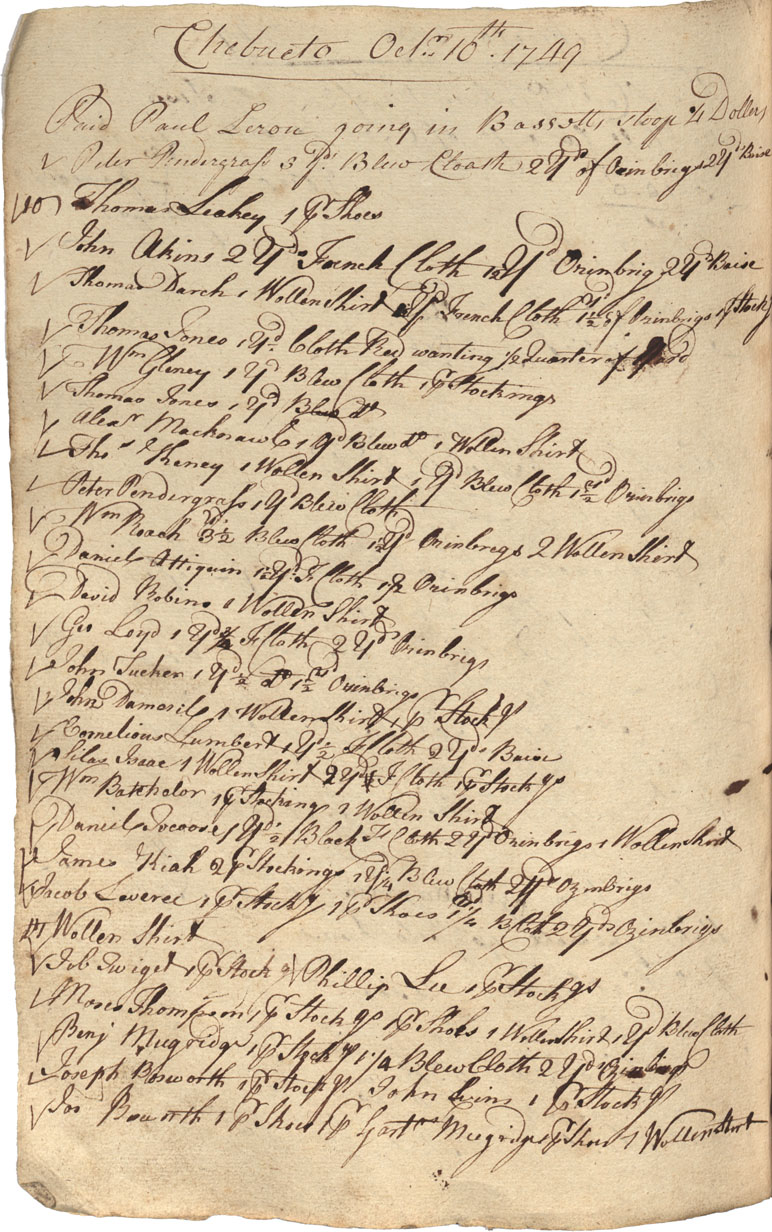 Chebucto Octr. 10th. 1749
Paid Paul Lerou going in Bassetts sloop 4 Dollers
Peter Pendergrass 3 Yds. Blew Cloath 2 Yds of Ozinbrigs 2 Yds Baise
Thomas Leakey 1 Pr Shoes
John Akins 2 Yds French Cloth 1½ Yd Ozinbrig 2 Yds Baise
Thomas Darch 1 Wollen Shirt Yd French Cloth 1½ Yd of Ozinbrigs 1 Pr Stockgs
Thomas Jones 1 Yd. Cloth Red wanting ½ Quarter of Yard
Wm Gleney 1 Yd Blew Cloth 1 Pr Stockings
Thomas Jones 1 Yd Blew do
Alexr 1 Yd Blew do 1 Wollen Shirt
Thos Keney 1 Wollen Shirt 1 Yd Blew Cloth 1½ Yd Ozinbrigs
Peter Pendergrass 1 Yd Blew Cloth
Wm Roach 3½ Yds Blew Cloth 1½ Yd Ozinbregs 2 Wollen Shirt
Daniel Attiquin 1½ Yd. F Cloth 1½ Ozinbrigs
David Robins 1 Wollen Shirt
Geo Loyd 1 Yd ¾ F Cloth 2 Yds Ozinbrigs
John Tucker 1 Yd ½ do 1½ Yd Ozinbrigs
John Damosil 1 Wollen Shirt 1 Pr Stockgs
Cornelious Lumbert 1 Yd ½ F Cloth 2 Yds Baise
Silas Isaac 1 Wollen Shirt 2 Yds F Cloth 1 Pr Stockgs
Wm Batchelor 1 Pr Stockings 1 Wollen Shirt
Daniel 1 Yd ½ Black F Cloth 2 Yds Ozinbrigs 1 Wollen Shirt
James Kiah 2 Pr Stockings 1 Yd ¼ Blew Cloth 2 Yds Ozinbrigs
Jacob Leveree 1 Pr Stockgs 1 Pr Shoes 1¼ Yd B Cloth 2 Yds Ozinbrigs
Wollen Shirt
Job Twiget 1 Pr Stockgs Phillip Lee 1 Pr Stockgs
Moses Thompson 1 Pr Stockgs 1 Pr Shoes 1 Wollen Shirt 1 Yd Blew Cloth
Benj Mugridge 1 Pr Stockgs 1¼ Blew Cloth 2 Yds Ozinbrigs
Joseph Bosworth 1 Pr Stockgs John 1 Pr Stockgs
Jos 1 Pr Shoes 1 Pr Mugridge 1 Pr Shoes 1 Wollen Shirt